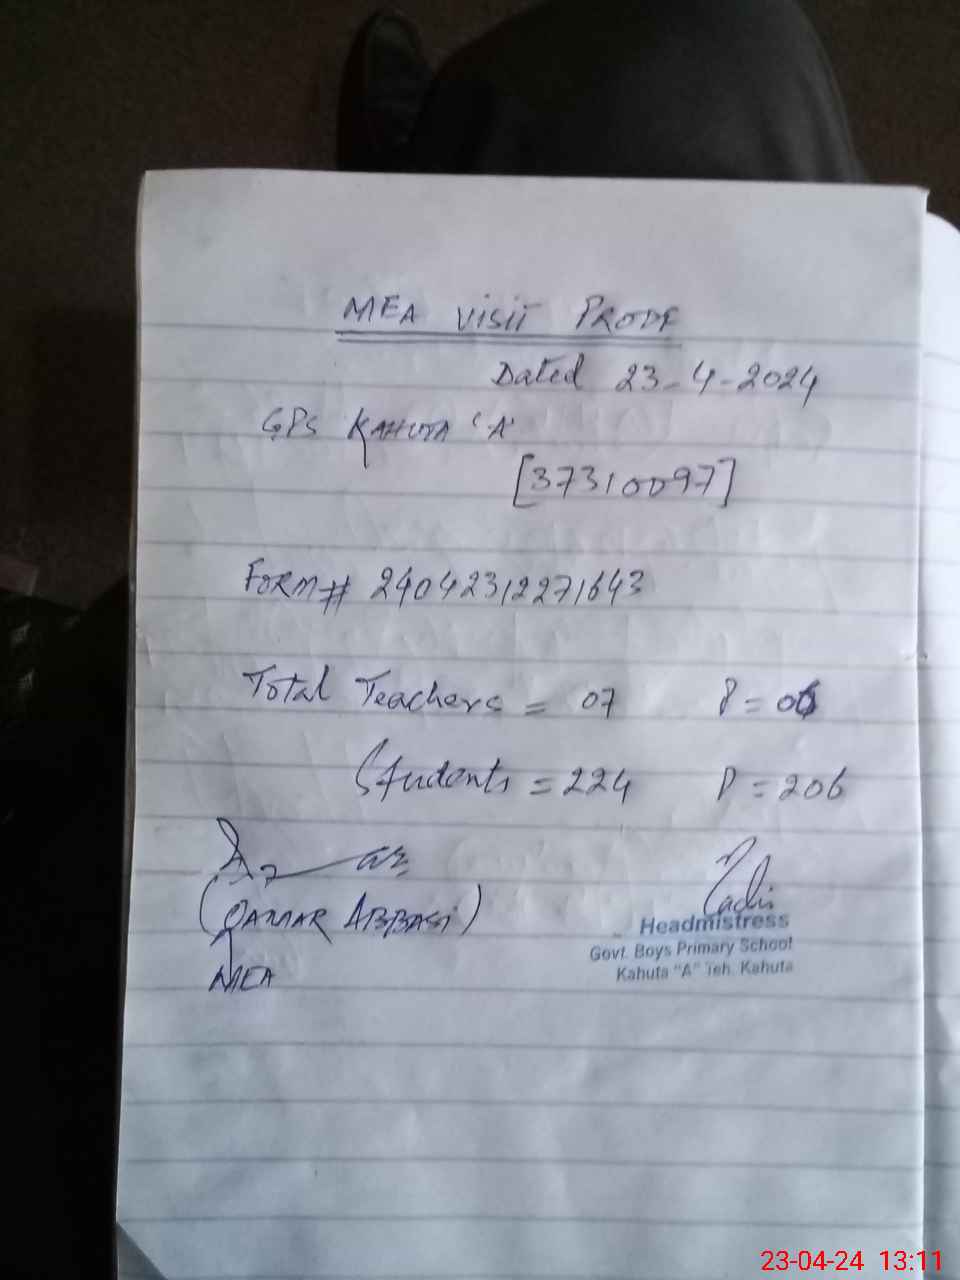 MEA Visit PROOF
Dated 23-4-2024
GPS KAHUTA 'A'
[37310097]
FORM# 24042312271643
Total Teachers = 07 P = 06
Students = 224 P = 206
(QAMAR ABBASi)
MEA
Headmistress
Govt. Boys Primary School
Kahuta "A" Teh. Kahuta
23-04-24 13:11